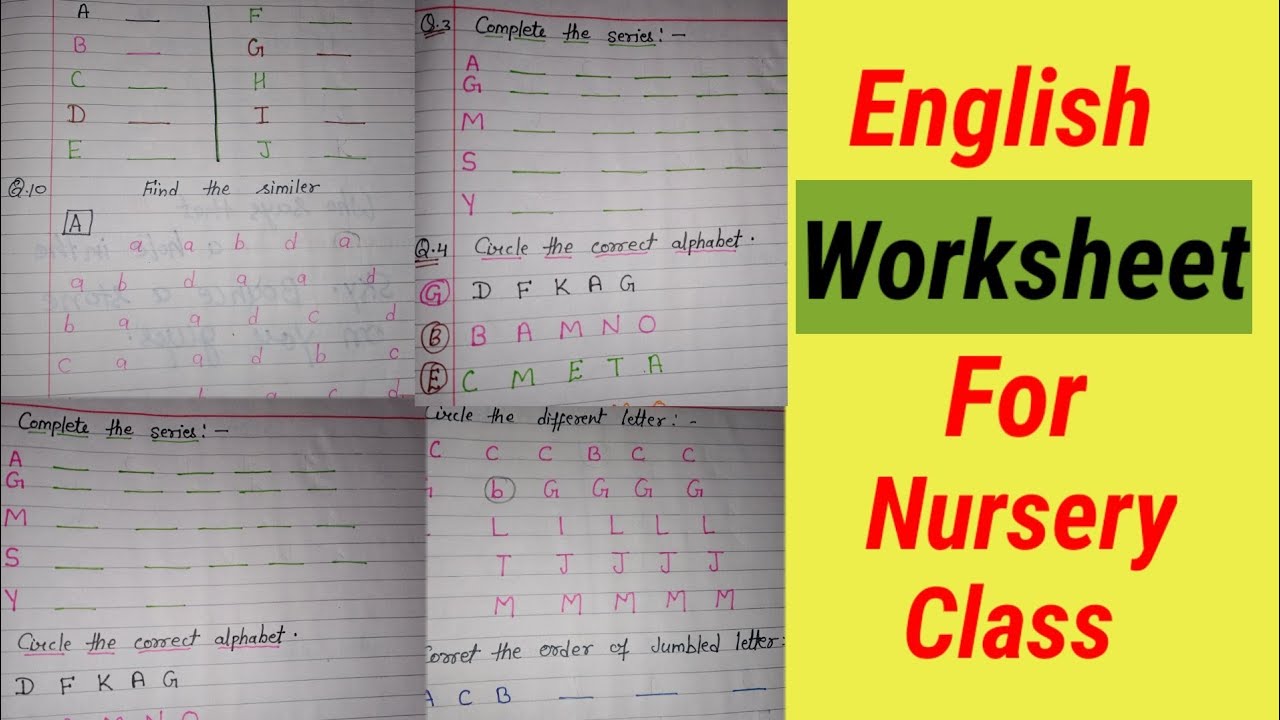 A __ F __
B __ G __
C __ H __
D __ I __
E __ J __
Q.10 Find the similer
A
a a b d a
a b d a a d
b a a d c d
c a a d b c
a c d
Q.3 Complete the series:-
A __ __ __ __ __
G __ __ __ __ __
M __ __ __ __ __
S __ __ __ __
Y __ __
Q.4 Circle the correct alphabet.
G D F K A G
B B A M N O
E C M E T A
Complete the series:-
A __ __ __ __ __
G __ __ __ __ __
M __ __ __ __ __
S __ __ __ __ __
Y __ __
Circle the correct alphabet.
D F K A G
Circle the different letter:-
C C C B C C
b G G G G
L I L L L
T J J J J
M M M M M
Corret the order of Jumbled letter:
A C B __ __ __
English
Worksheet
For
Nursery
Class